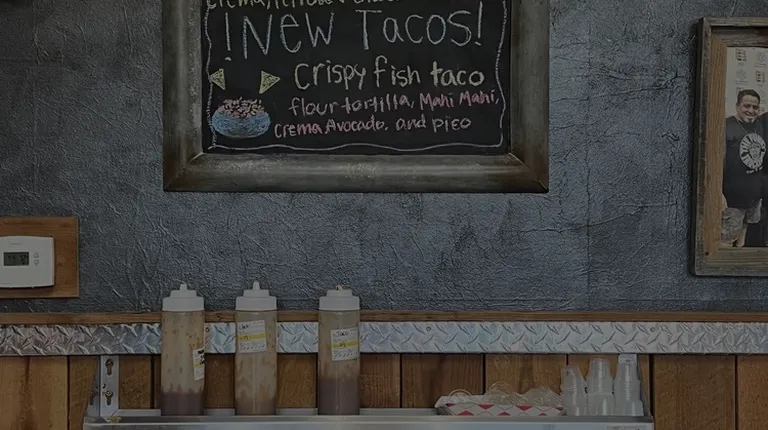 ¡New Tacos!
crispy fish taco
flour tortilla, Mahi Mahi,
crema Avocado. and pico